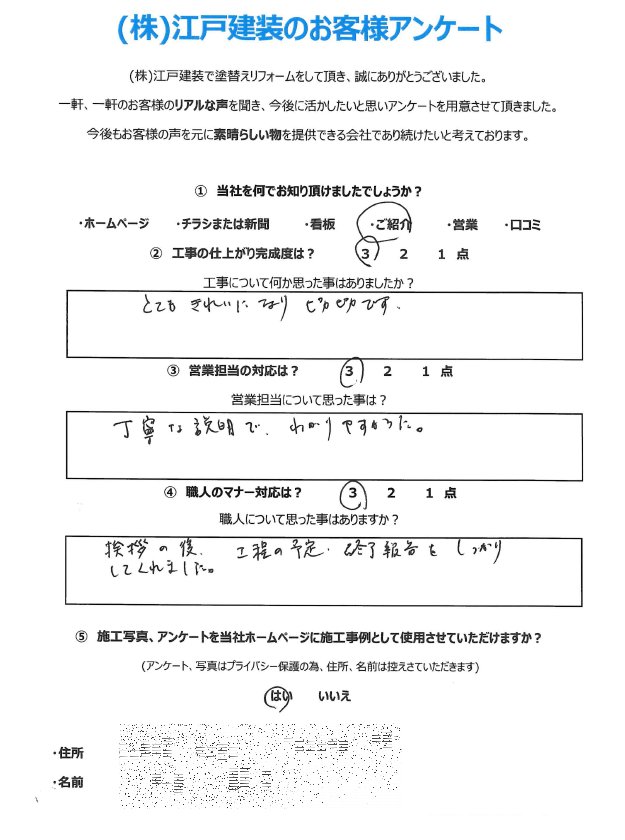 (株)江戸建装のお客様アンケート
(株)江戸建装で塗替えリフォームをして頂き、誠にありがとうございました。
一軒、一軒のお客様のリアルな声を聞き、今後に活かしたいと思いアンケートを用意させて頂きました。
今後もお客様の声を元に素晴らしい物を提供できる会社であり続けたいと考えております。
① 当社を何でお知り頂けましたでしょうか？
・ホームページ ・チラシまたは新聞 ・看板 ・ご紹介 ・営業 ・口コミ
② 工事の仕上がり完成度は？ 3 2 1 点
工事について何か思った事はありましたか？
とても きれいになり ピカピカです.
③ 営業担当の対応は？ 3 2 1 点
営業担当について思った事は？
丁寧な説明で、わかりやすかった。
④ 職人のマナー対応は？ 3 2 1 点
職人について思った事はありますか？
挨拶の後、工程の予定・終了報告をしっかり
してくれました。
⑤ 施工写真、アンケートを当社ホームページに施工事例として使用させていただけますか？
(アンケート、写真はプライバシー保護の為、住所、名前は控えさていただきます)
はい いいえ
・住所
・名前